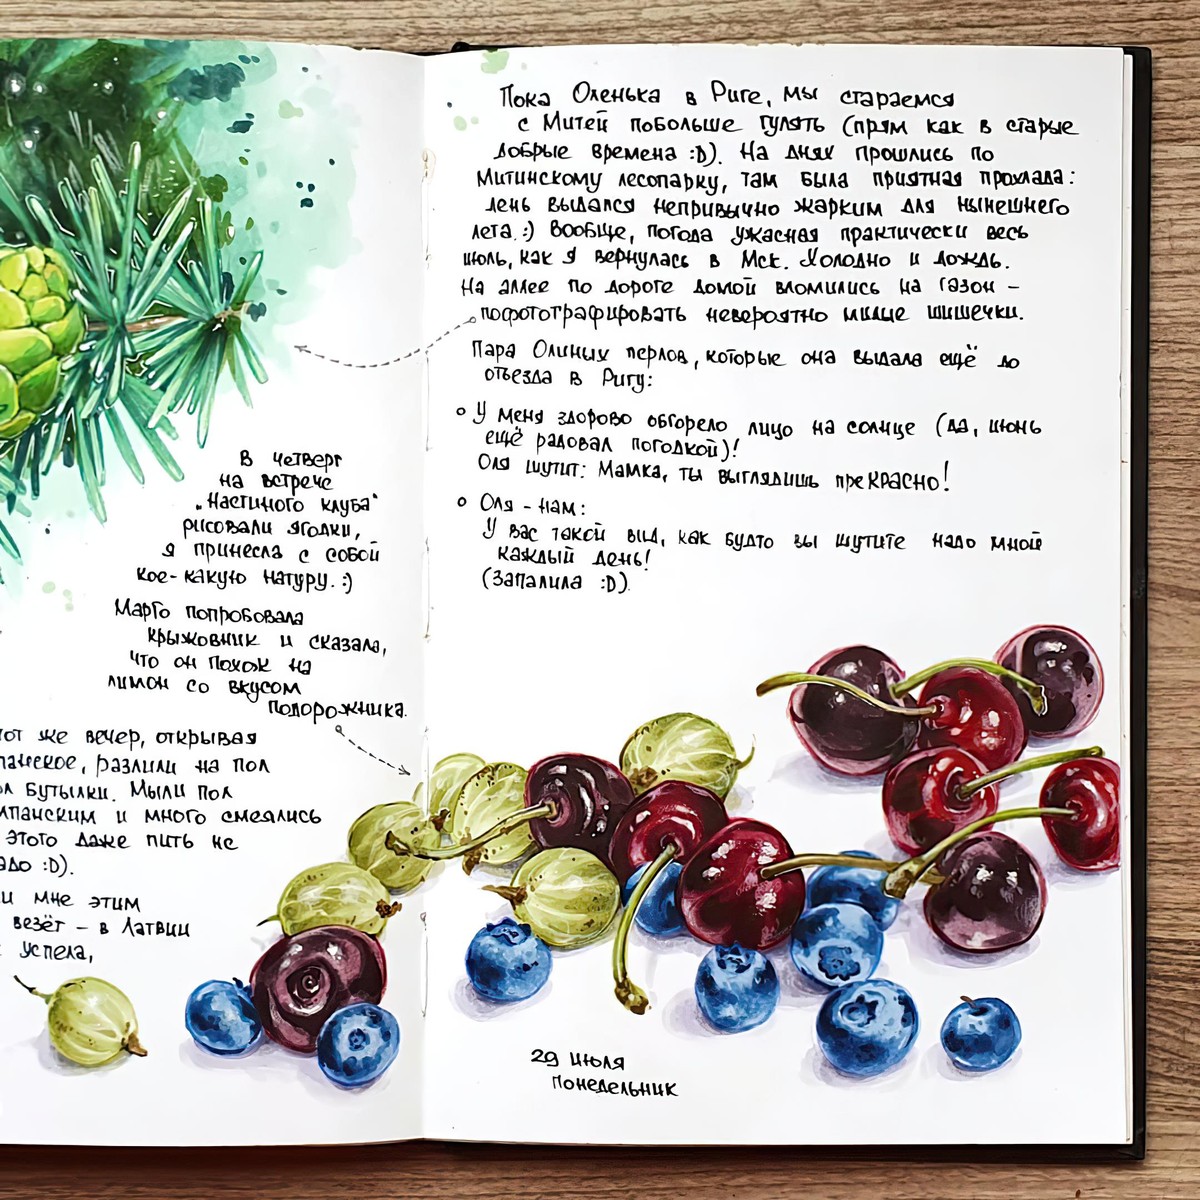 В четверг
на встрече
„Настиного клуба"
рисовали ягодки,
я принесла с собой
кое-какую натуру. :)
Марго попробовала
крыжовник и сказала,
что он похож на
лимон со вкусом
подорожника.
тот же вечер, открывая
разлили на пол
бутылки. Мыли пол
и много смеялись
этого даже пить не
:D).
мне этим
везёт – в Латвии
успела,
Пока Оленька в Риге, мы стараемся
с Митей побольше гулять (прям как в старые
добрые времена :D). На днях прошлись по
Митинскому лесопарку, там была приятная прохлада:
день выдался непривычно жарким для нынешнего
лета. :) Вообще, погода ужасная практически весь
июль, как я вернулась в Мск. Холодно и дождь.
На аллее по дороге домой вломились на газон –
пофотографировать невероятно милые шишечки.
Пара Олиных перлов, которые она выдала ещё до
отъезда в Ригу:
° У меня здорово обгорело лицо на солнце (да, июнь
ещё радовал погодкой)!
Оля шутит: Мамка, ты выглядишь преКРАСНО!
° Оля – нам:
У вас такой вид, как будто вы шутите надо мной
каждый день!
(Запалила :D).
29 июля
понедельник